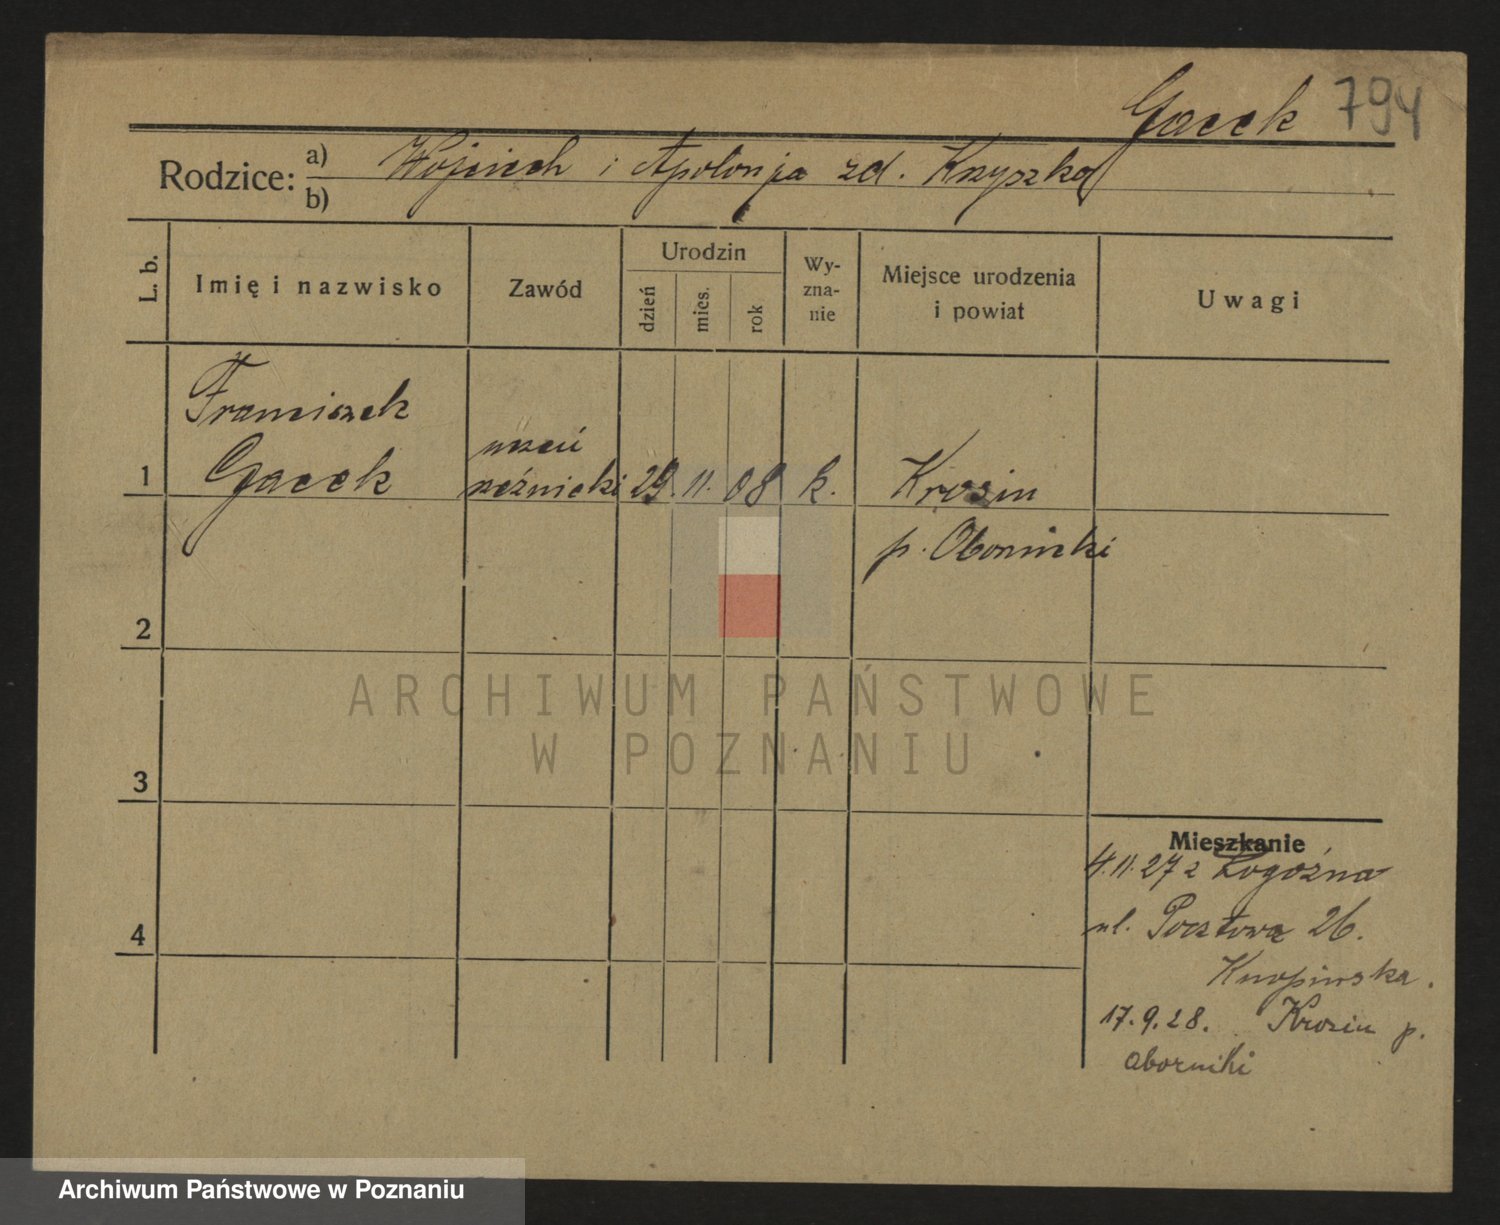 Gacek 794
Rodzice: a) Wojciech i Apolonja zd. Krzyszka
b)
L. b.
Imię i nazwisko
Zawód
Urodzin
dzień
mies.
rok
Wy-
zna-
nie
Miejsce urodzenia
i powiat
Uwagi
Franciszek
Gacek
uczeń
rzeźnicki
1
29. 11. 08 k. Krosin
p. Oborniki
2
3
4
Mieszkanie
4.11.27 z Rogoźna
ul. Pocztowa 26.
17.9.28. Krosin p.
Oborniki
ARCHIWUM PAŃSTWOWE
W POZNANIU
Archiwum Państwowe w Poznaniu